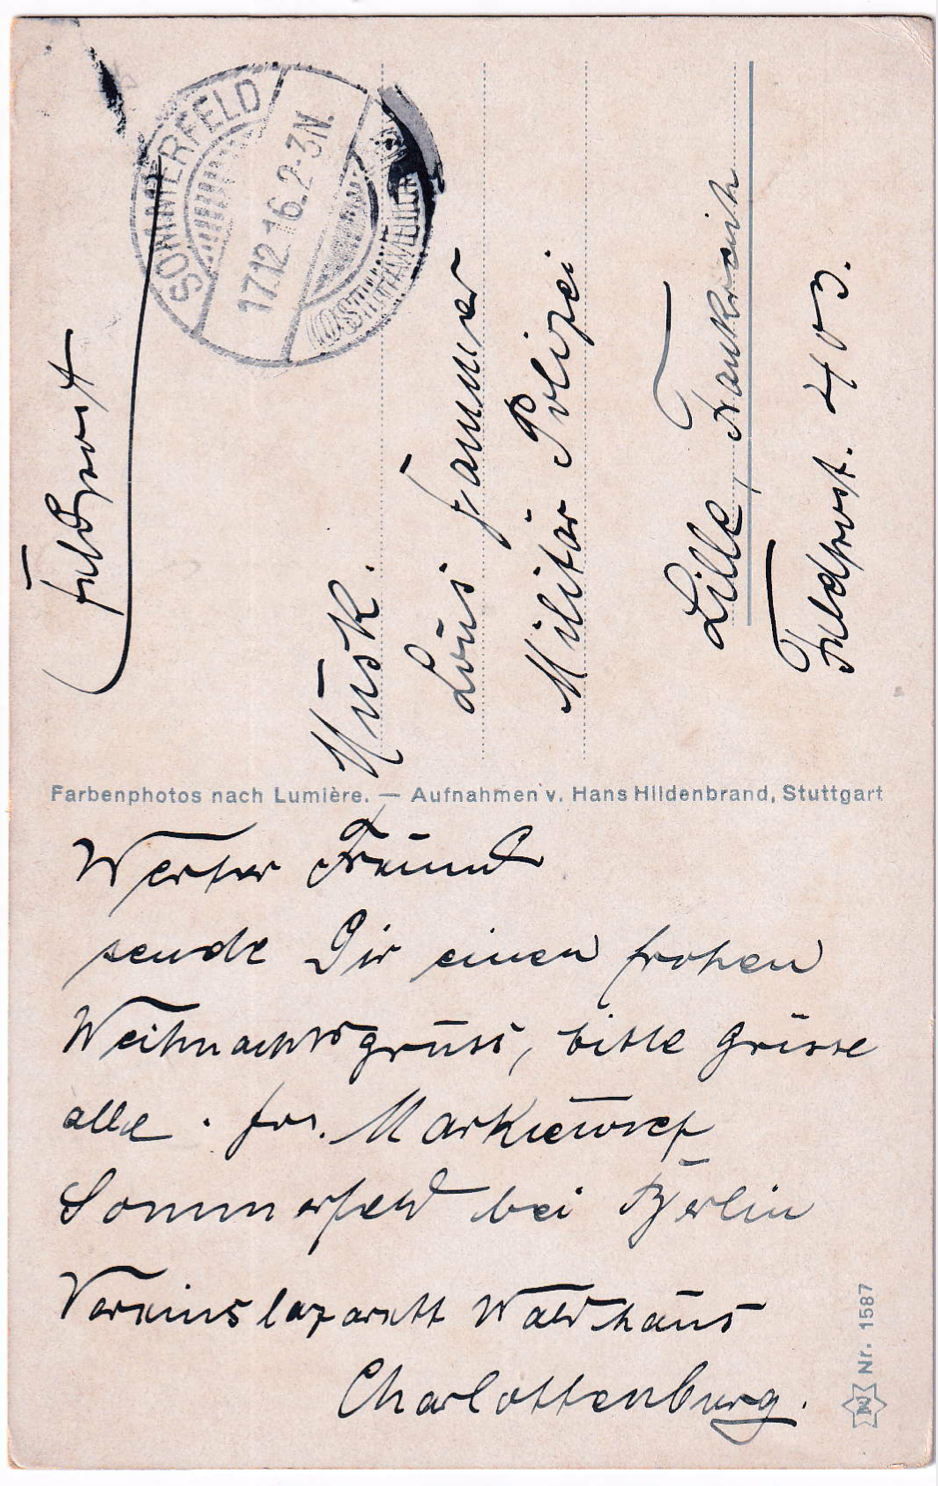 Feldpost
SOMMERFELD
17.12.16.2-3N.
(OSTHAVELLAND)
Musk.
Louis Hammer
Militär Polizei
Lille, Frankreich
Feldpost. 403.
Farbenphotos nach Lumière. — Aufnahmen v. Hans Hildenbrand, Stuttgart
Werter Freund
sende Dir einen frohen
Weihnachtsgruss, bitte grüsse
alle.
Sommerfeld bei Berlin
Vereinslazarett Waldhaus
Charlottenburg.
Nr. 1587